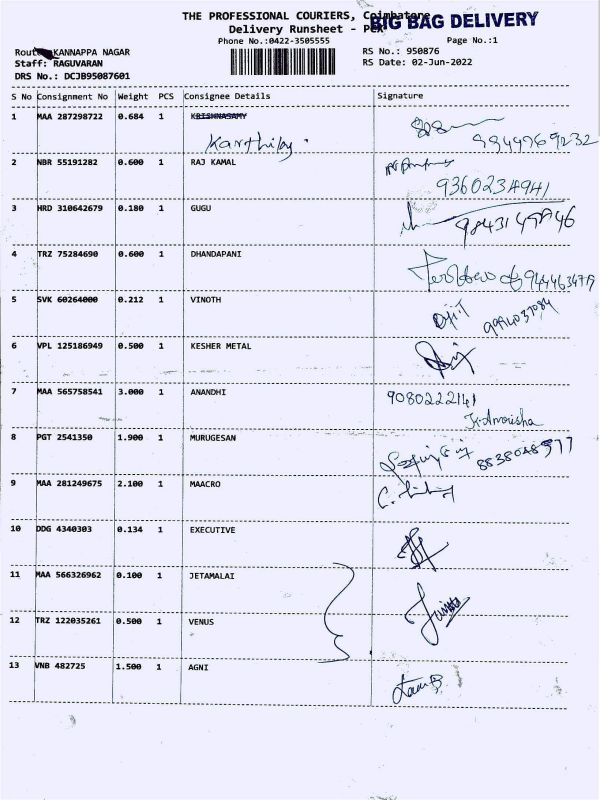 THE PROFESSIONAL COURIERS, Coimbatore
BIG BAG DELIVERY
Delivery Runsheet - PCX
Phone No.:0422-3505555
Page No.:1
Route: KANNAPPA NAGAR
RS No.: 950876
Staff: RAGUVARAN
RS Date: 02-Jun-2022
DRS No.: DCJB95087601
S No Consignment No Weight PCS Consignee Details Signature
1 MAA 287298722 0.684 1 KRISHNASAMY
2 NBR 55191282 0.600 1 RAJ KAMAL
9360234941
3 HRD 310642679 0.180 1 GUGU
4 TRZ 75284690 0.600 1 DHANDAPANI
5 SVK 60264000 0.212 1 VINOTH
6 VPL 125186949 0.500 1 KESHER METAL
7 MAA 565758541 3.000 1 ANANDHI
9080222141
8 PGT 2541350 1.900 1 MURUGESAN
9 MAA 281249675 2.100 1 MAACRO
10 DDG 4340303 0.134 1 EXECUTIVE
11 MAA 566326962 0.100 1 JETAMALAI
12 TRZ 122035261 0.500 1 VENUS
13 VNB 482725 1.500 1 AGNI